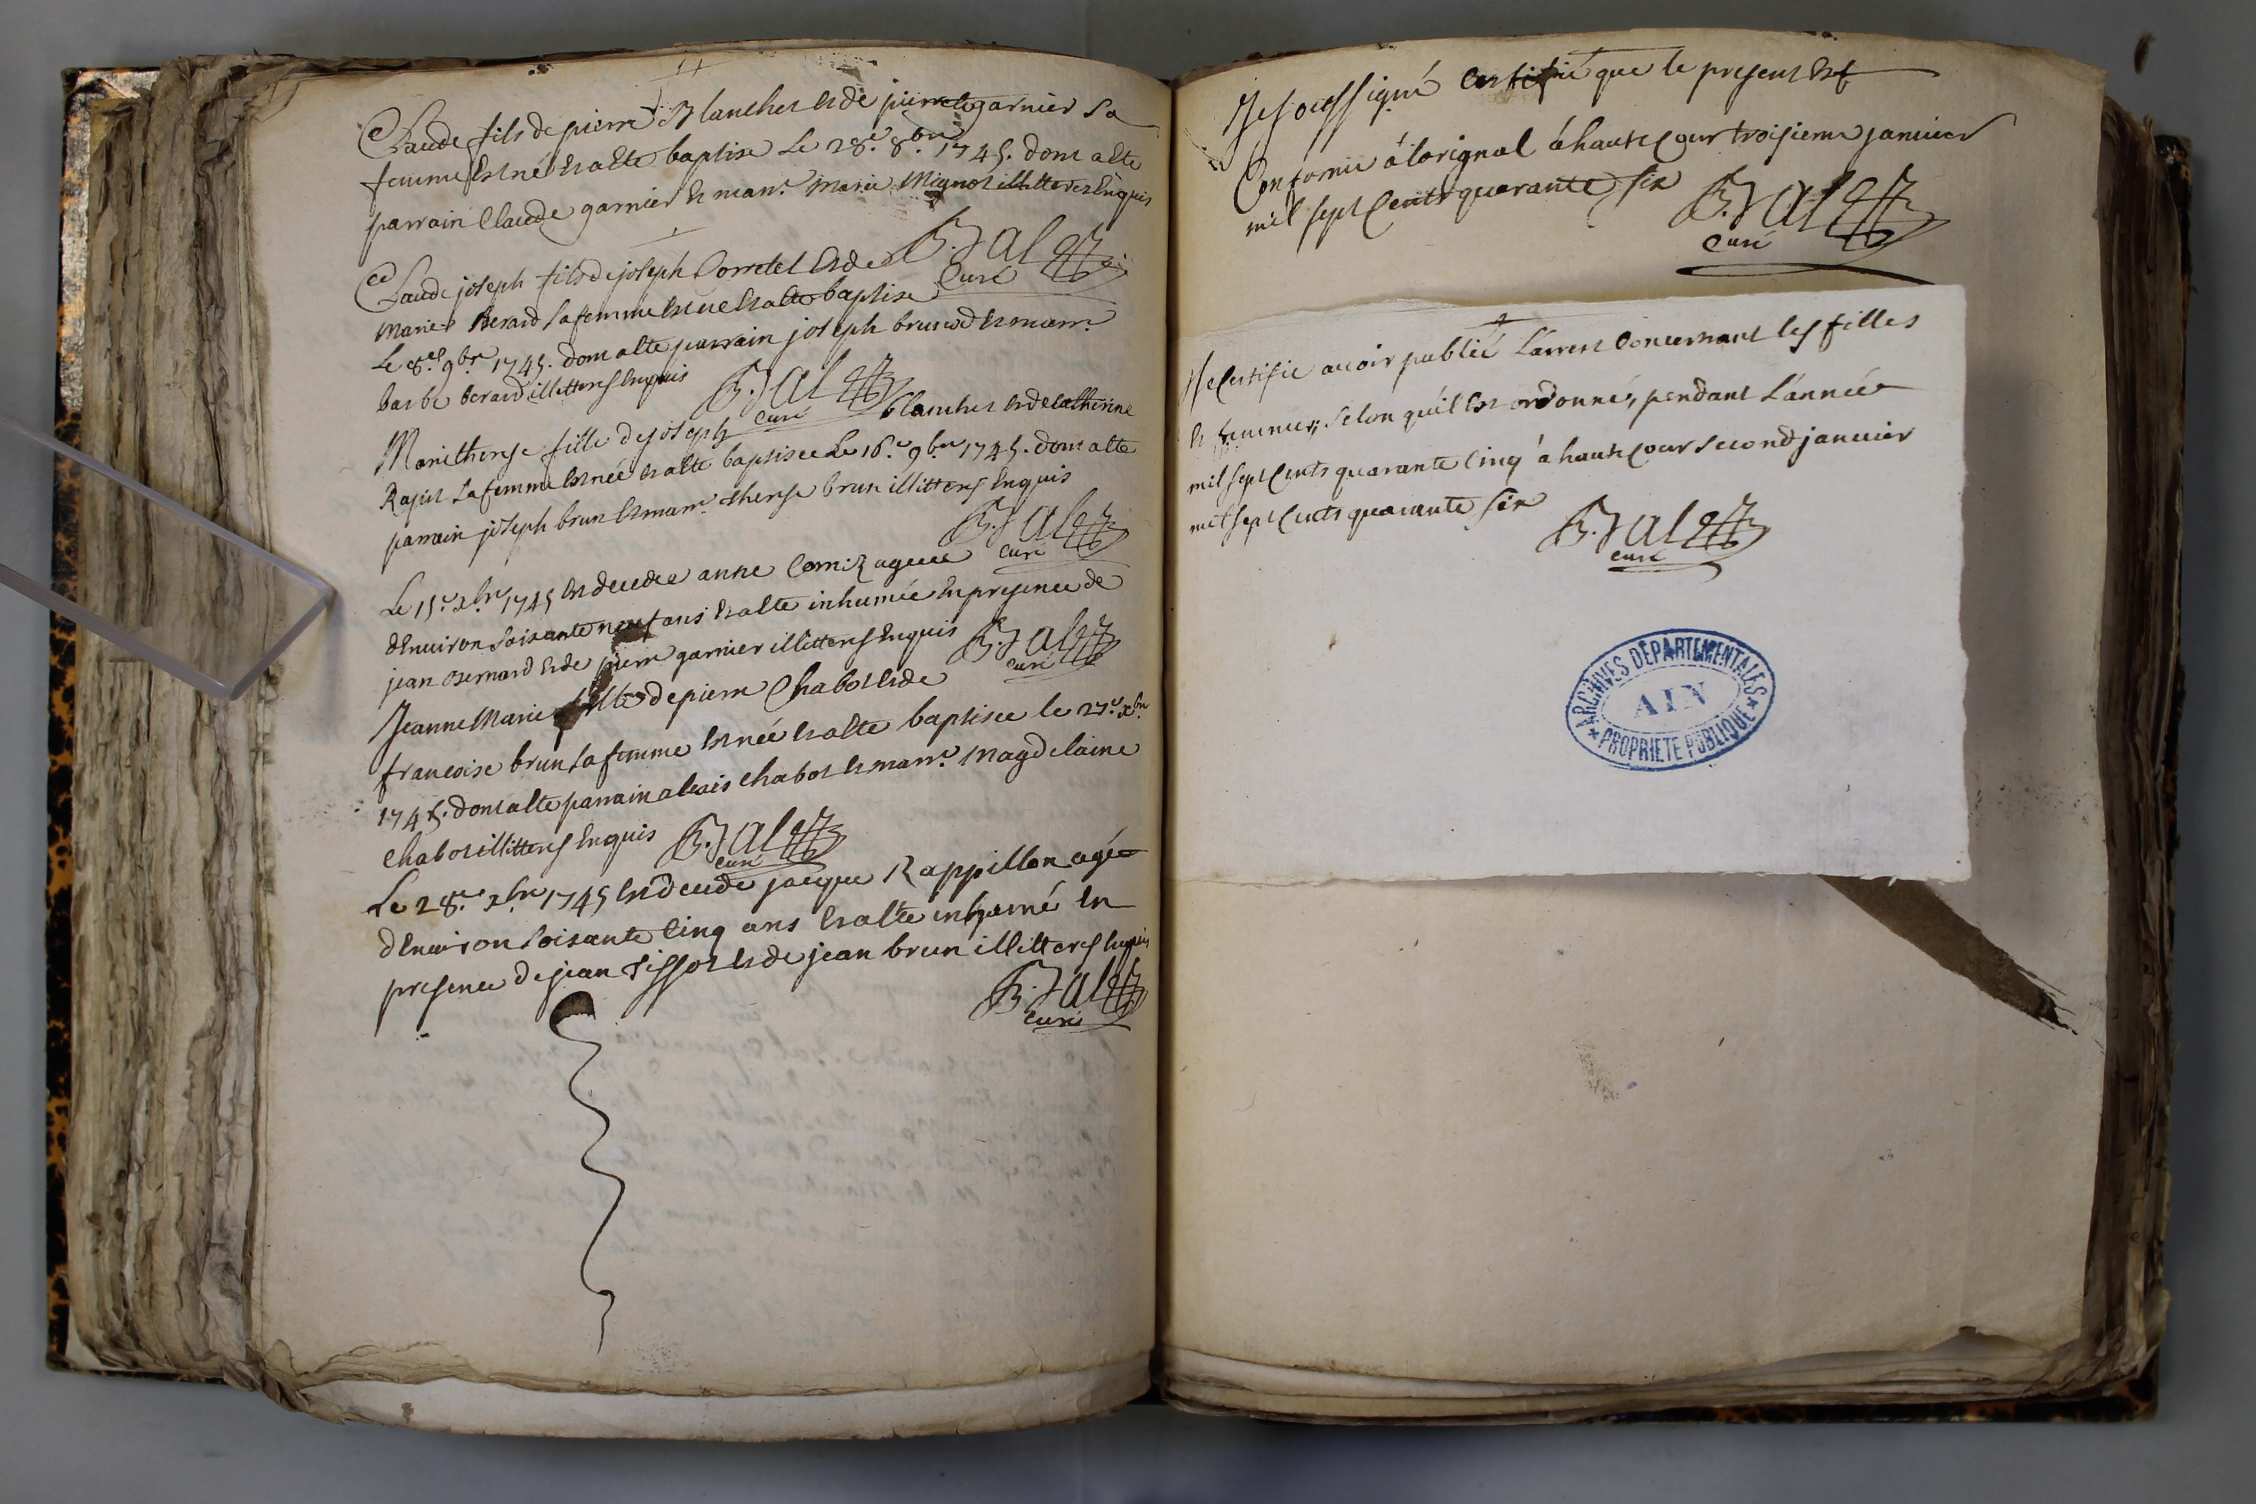 Claude fils de pierre Blanchet et de pierrette garnier Sa
femme Est né Et a Ete baptise Le 28.e 8.bre 1745. dont a Ete
parrain Claude garnier Et marr.e Marie Mignot illitteres Enquis
B. Jal
Curé
Claude joseph fils de joseph Corretel Et de
Marie Berard Sa femme Est né Et a Ete baptise
Le 8.e 9.bre 1745. dont a Ete parrain joseph brunod Et marr.e
barbe berard illitteres Enquis
B. Jal
Curé
Marie therese fille de joseph blanchet Et de catherine
Rapit Sa femme Est née Et a Ete baptisee Le 16.e 9.bre 1745. dont a Ete
parrain joseph brun Et marr.e therese brun illitteres Enquis
B. Jal
Curé
Le 15.e xbre 1745 Est decedee anne Corniz agee
d'Environ Soixante neuf ans Et a Ete inhumée En presence de
jean Bernard Et de pierre garnier illitteres Enquis
B. Jal
Curé
Jeanne Marie fille de pierre Chabot Et de
francoise brun Sa femme Est née Et a Ete baptisee le 27.e xbre
1745. dont a Ete parrain alexis Chabot Et marr.e Magdelaine
Chabot illitteres Enquis
B. Jal
Curé
Le 28.e xbre 1745 Est decedé jacque Rappillon agé
d'Environ Soixante Cinq ans Et a Ete inhumé En
presence de jean tissot Et de jean brun illitteres Enquis
B. Jal
Curé
Je soussigné Certifié que le present Est
Conforme á l'orignal á hautecour troisieme janvier
mil sept Cents quarante six
B. Jal
Curé
Je Certifie avoir publié L'arrest Concernant les filles
Et femmes, Selon qu'il Est ordonné, pendant L'année
mil sept Cents quarante Cinq á hautecour second janvier
mil sept Cents quarante six
B. Jal
Curé
ARCHIVES DÉPARTEMENTALES
AIN
PROPRIETE PUBLIQUE